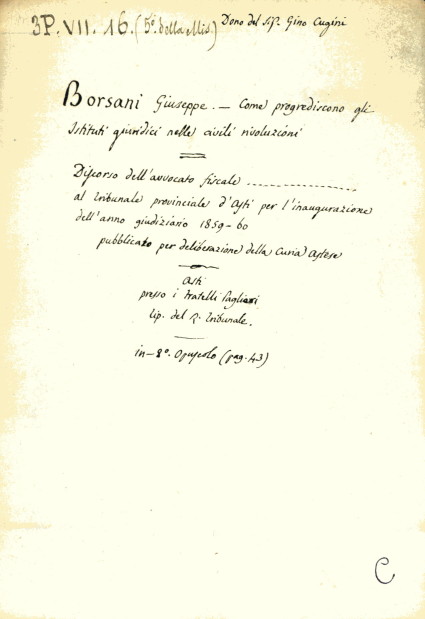 3P. VII. 16. (5º della Mis.) Dono del Sig. Gino Cugini
Borsani Giuseppe. — Come progrediscono gli
Istituti giuridici nelle civili rivoluzioni
Discorso dell'avvocato fiscale ....................
al Tribunale provinciale d'Asti per l'inaugurazione
dell'anno giudiziario 1859-60
pubblicato per deliberazione della Curia Astese
Asti
presso i fratelli Paglieri
tip. del R. Tribunale.
in-8º. Opuscolo (pag. 43)
C